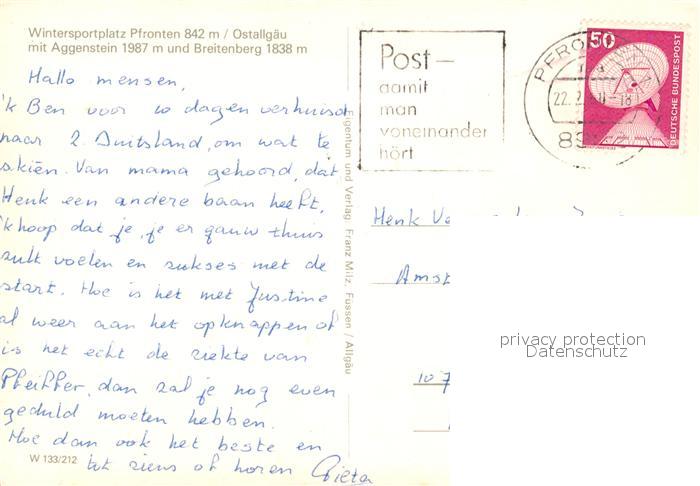 Wintersportplatz Pfronten 842 m / Ostallgäu
mit Aggenstein 1987 m und Breitenberg 1838 m
Hallo mensen,
'k Ben voor 10 dagen verhuisd
naar Z. Duitsland, om wat te
skiën. Van mama gehoord, dat
Henk een andere baan heeft,
'k hoop dat je, je er gauw thuis
zult voelen en sukses met de
start. Hoe is het met Justine
al weer aan het opknappen of
is het echt de ziekte van
Pfeiffer, dan zal je nog even
geduld moeten hebben.
Hoe dan ook het beste en
tot ziens of horen Pieta
W 133/212
Eigentum und Verlag Franz Milz, Füssen / Allgäu
Post –
damit
man
voneinander
hört
PFRO
22. 2.
50
DEUTSCHE BUNDESPOST
Henk
Amst
107
privacy protection
Datenschutz